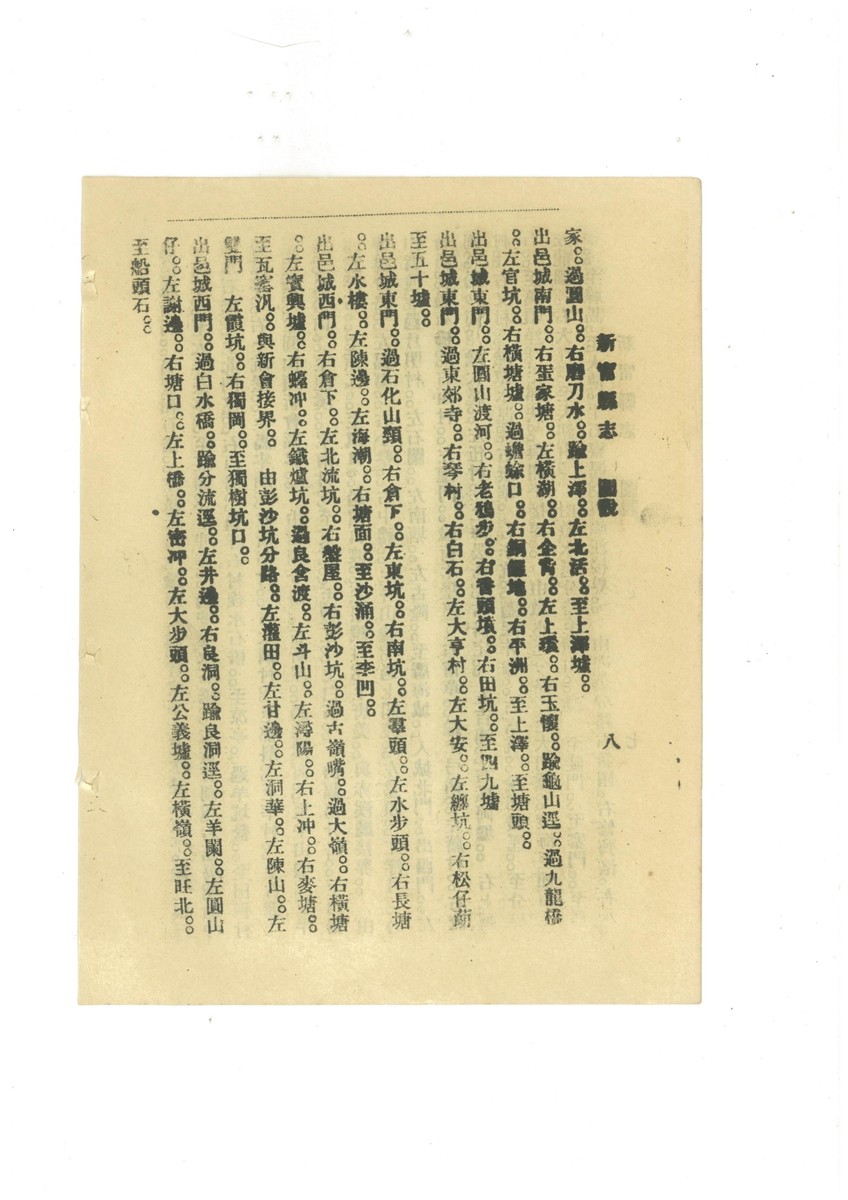 新寗縣志 圖說 八
家。。過圓山。。右磨刀水。。踰上澤。。左北活。。至上澤墟。。
出邑城南門。。右蛋家塘。。左橫湖。。右企背。。左上。。右玉懷。。踰龜山逕。。過九龍橋
。。左官坑。。右橫塘墟。。過蟾蜍口。。右銅鑼地。。右平洲。。至上澤。。至塘頭。。
出邑城東門。。左圓山渡河。。右老鴉步。。右番頭墳。。右田坑。。至四九墟
出邑城東門。。過東郊寺。。右琴村。。右白石。。左大亨村。。左大安。。左纏坑。。右松仔蓢
至五十墟。。
出邑城東門。。過石化山頸。。右倉下。。左東坑。。右南坑。。左羣頭。。左水步頭。。右長塘
。。左水樓。。左陳邊。。左海潮。。右塘面。。至沙涌。。至李凹。。
出邑城西門。。右倉下。。左北流坑。。右盤屋。。右彭沙坑。。過古嶺嘴。。過大嶺。。右橫塘
。。左寶興墟。。右蠔冲。。左鐵爐坑。。過良舍渡。。左斗山。。左潯陽。。右上冲。。右麥塘。。
至瓦窰汎。。與新會接界。。 由彭沙坑分路。。左灌田。。左甘邊。。左洞華。。左陳山。。左
雙門 左霞坑。。右獨岡。。至獨樹坑口。。
出邑城西門。。過白水橋。。踰分流逕。。左井邊。。右良洞。。踰良洞逕。。左羊闌。。左圓山
仔。。左謝邊。。右塘口。。左上橋。。左密冲。。左大步頭。。左公義墟。。左橫嶺。。至旺北。。
至船頭石。。